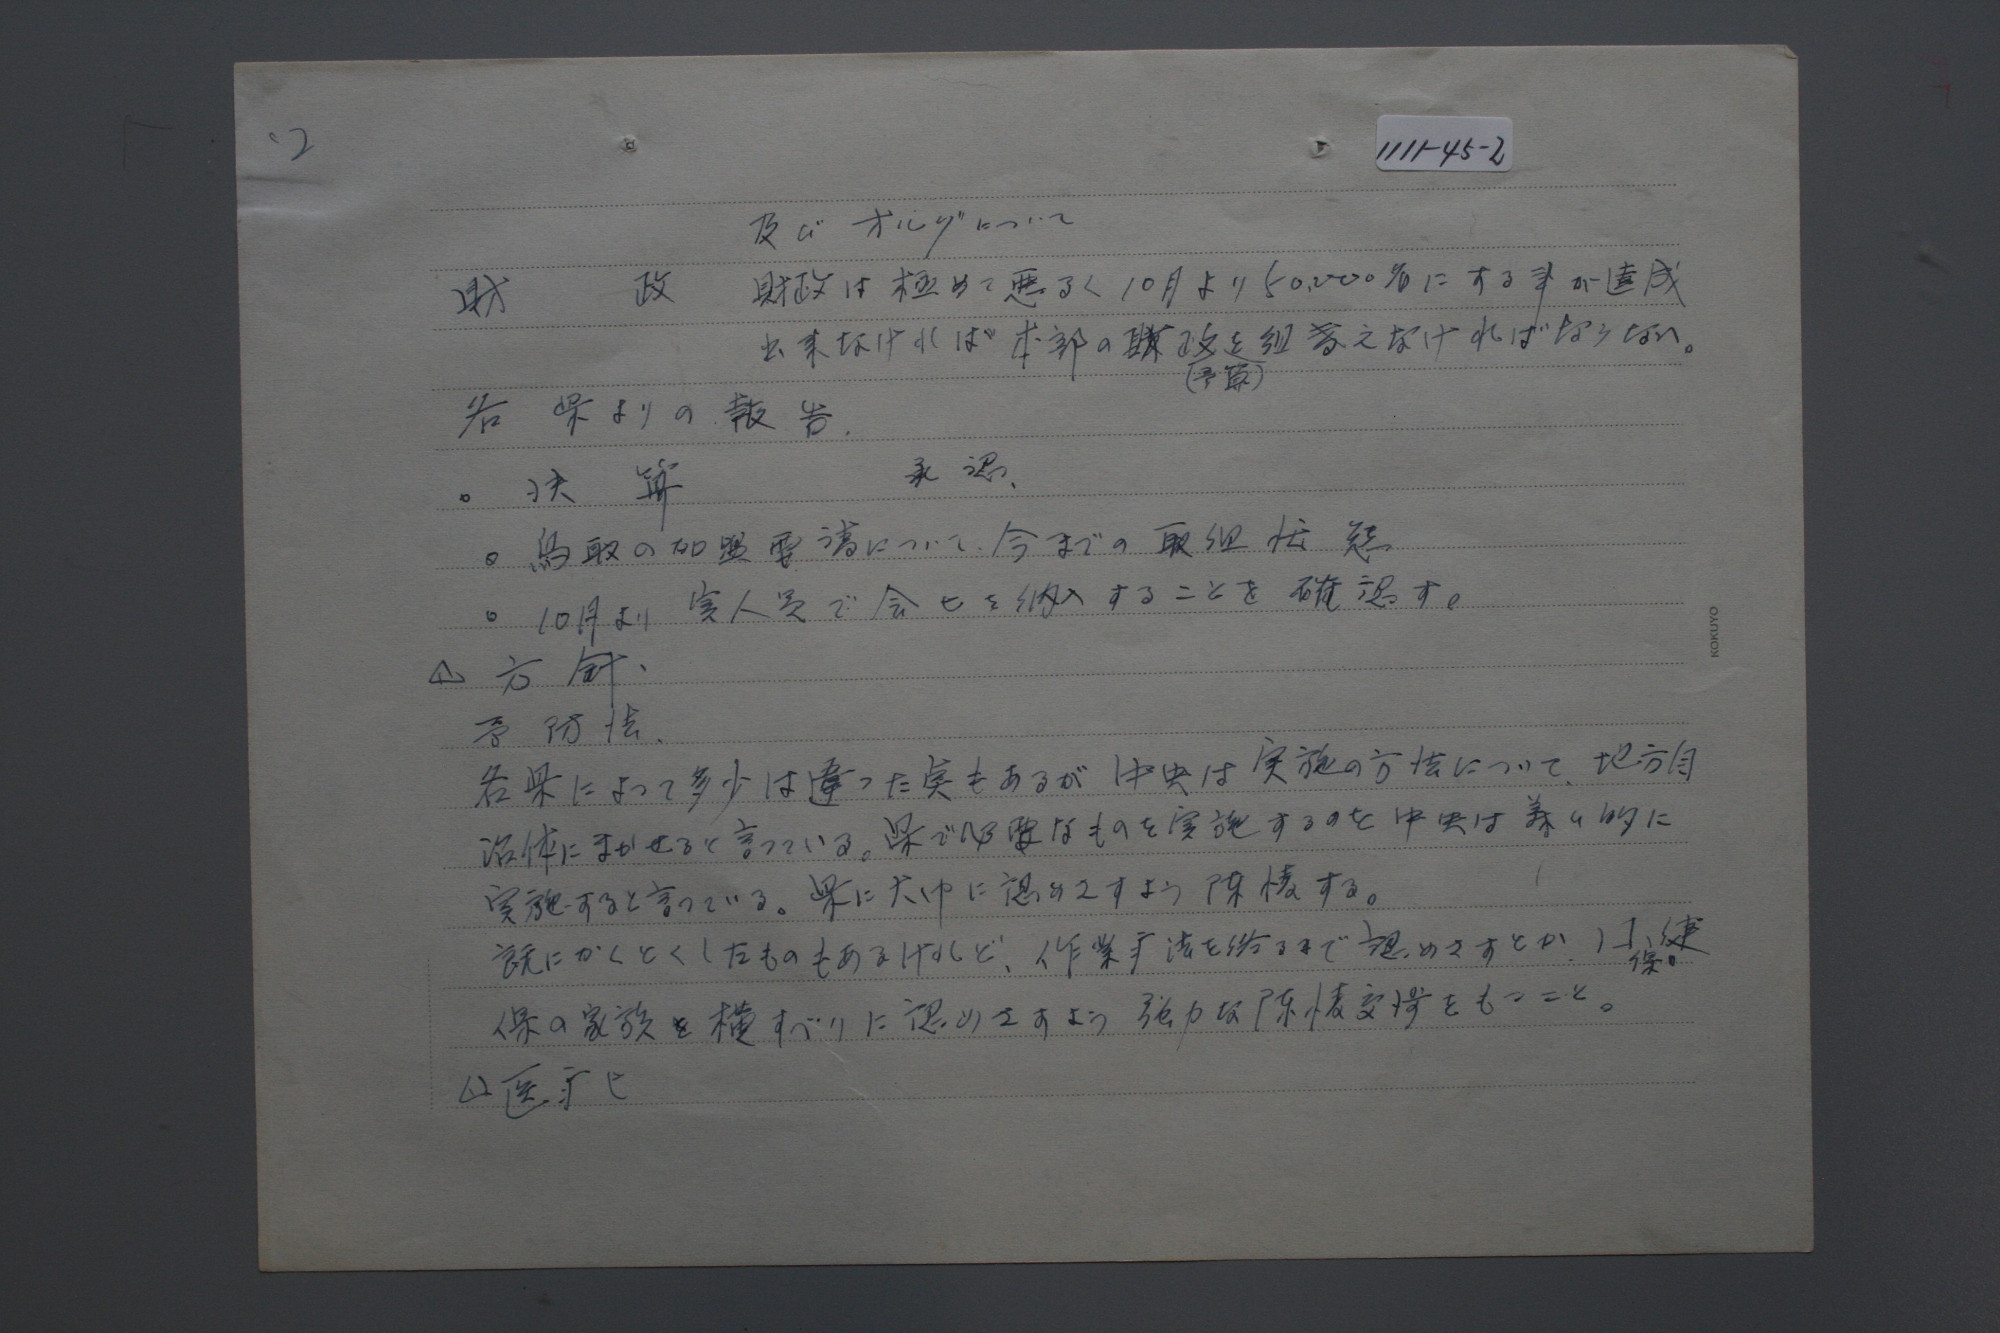 2
1111-45-2
及びオルグについて
財政 財政は極めて悪るく10月より50,000名にする事が達成
出来なければ本部の財政を組替えなければならない。
(予算)
各県よりの報告.
。決算 承認、
。鳥取の加盟要請について、今までの取組状態
。10月より実人員で会ヒを納入することを確認す。
方針、
予防法、
各県によって多少は違った実もあるが中央は実施の方法について、地方自
治体にまかせると言っている。県で必要なものを実施するのを中央は義ム的に
実施すると言っている。県に大巾に認めさすよう陳情する。
既にかくとくしたものもあるけれど、作業療法を始るまで認めさすとか、健
保。
保の家族を横すべりに認めさすよう強力な陳情交渉をもつこと。
医療ヒ
KOKUYO